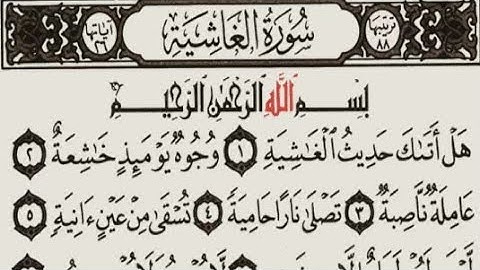 ترتيبها ٨٨ سُورَةُ الغَاشِيَةِ آياتها ٢٦
بِسْمِ اللَّهِ الرَّحْمَٰنِ الرَّحِيمِ
هَلْ أَتَىٰكَ حَدِيثُ ٱلْغَٰشِيَةِ ١ وُجُوهٌ يَوْمَئِذٍ خَٰشِعَةٌ ٢
عَامِلَةٌ نَّاصِبَةٌ ٣ تَصْلَىٰ نَارًا حَامِيَةً ٤ تُسْقَىٰ مِنْ عَيْنٍ ءَانِيَةٍ ٥